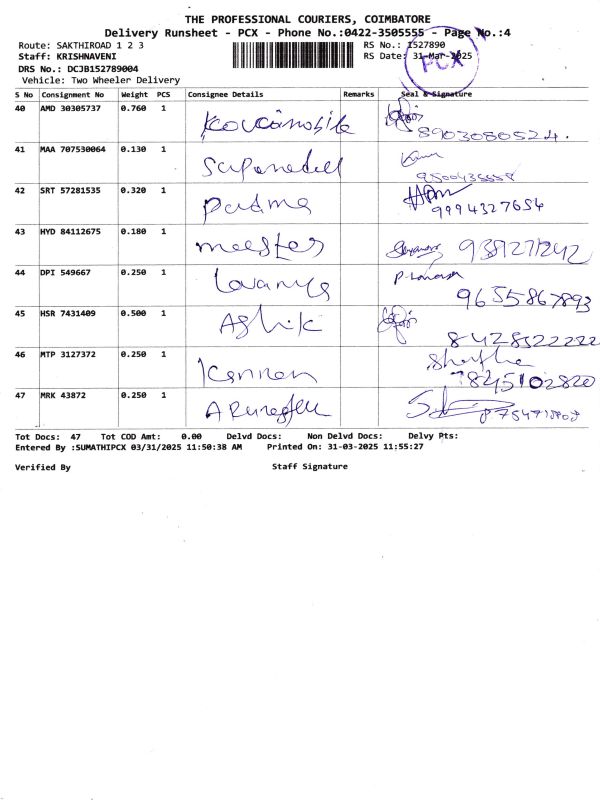 THE PROFESSIONAL COURIERS, COIMBATORE
Delivery Runsheet - PCX - Phone No.:0422-3505555 - Page No.:4
Route: SAKTHIROAD 1 2 3 RS No.: 1527890
Staff: KRISHNAVENI RS Date: 31-Mar-2025
PCX
DRS No.: DCJB152789004
Vehicle: Two Wheeler Delivery
S No Consignment No Weight PCS Consignee Details Remarks Seal & Signature
40 AMD 30305737 0.760 1
8903080524.
41 MAA 707530064 0.130 1
42 SRT 57281535 0.320 1 Padma
9994327654
43 HYD 84112675 0.180 1
44 DPI 549667 0.250 1 Lavanya
9655867893
45 HSR 7431409 0.500 1 Ashik
8428522222
46 MTP 3127372 0.250 1 Kannan
7845102820
47 MRK 43872 0.250 1
Tot Docs: 47 Tot COD Amt: 0.00 Delvd Docs: Non Delvd Docs: Delvy Pts:
Entered By :SUMATHIPCX 03/31/2025 11:50:38 AM Printed On: 31-03-2025 11:55:27
Verified By Staff Signature